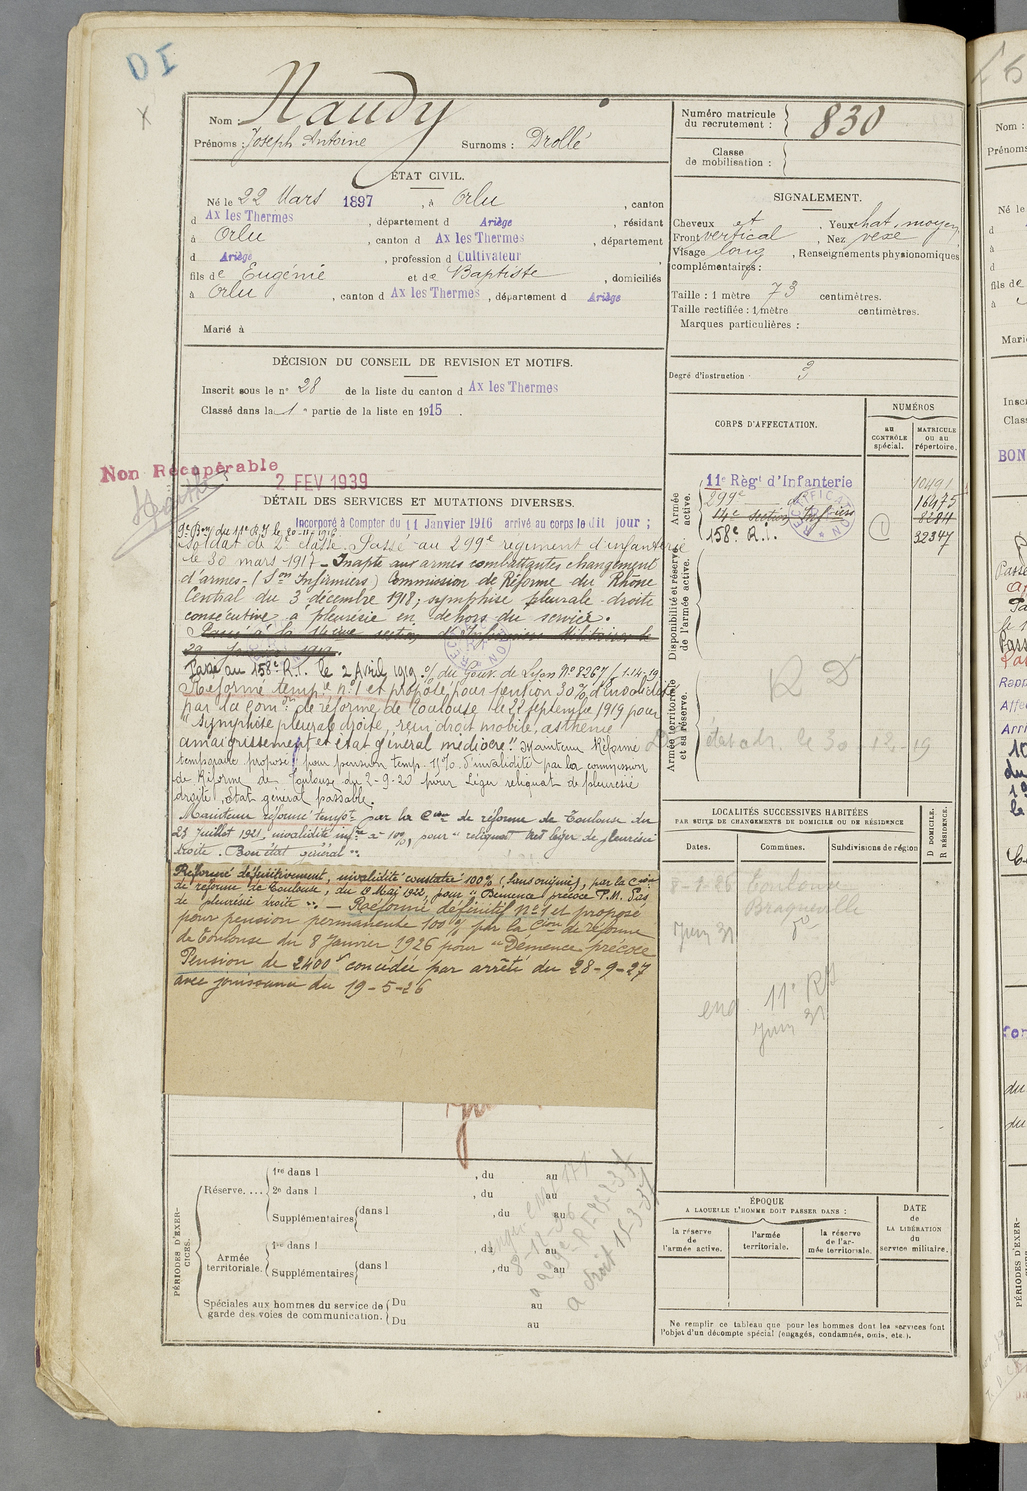 DI
X
Nom : Naudy
Prénoms : Joseph Antoine Surnoms : Drollé
Numéro matricule du recrutement : 830
Classe de mobilisation :
ÉTAT CIVIL.
Né le 22 Mars 1897, à Orlu, canton
d Ax les Thermes, département d Ariège, résidant
à Orlu, canton d Ax les Thermes, département
d Ariège, profession d Cultivateur
fils de Eugénie et de Baptiste, domiciliés
à Orlu, canton d Ax les Thermes, département d Ariège
Marié à
SIGNALEMENT.
Cheveux Yeux
Front vertical, Nez vexe
Visage long, Renseignements physionomiques
complémentaires :
Taille : 1 mètre 73 centimètres.
Taille rectifiée : 1 mètre centimètres.
Marques particulières :
Degré d'instruction 3
DÉCISION DU CONSEIL DE REVISION ET MOTIFS.
Inscrit sous le n° 28 de la liste du canton d Ax les Thermes
Classé dans la 1e partie de la liste en 1915.
Non Récupérable
2 FEV 1939
DÉTAIL DES SERVICES ET MUTATIONS DIVERSES.
Incorporé à Compter du 11 Janvier 1916 arrivé au corps le dit jour ;
9e Bon du 11e R.I. le 20-11-1916
Soldat de 2e classe. Passé au 299e régiment d'infanterie
le 30 mars 1917 - Inapte aux armes combattantes changement
d'armes - (Son Infirmiers) Commission de Réforme du Rhône
Central du 3 décembre 1918; symphise pleurale droite
consécutive à pleurésie en dehors du service.
Passé à la 14ème section d'Infirmiers Militaires le
29 Janvier 1919.
Passé au 158e R.I. le 2 Avril 1919. du Gouv. de Lyon N° 8267/1 1-4-19
Réformé tempre n°1 et proposé pour pension 30% d'invalidité
par la Comon de réforme de Toulouse le 22 septembre 1919 pour
"Symphise pleurale droite, rein droit mobile, asthénie
amaigrissement et état général médiocre". Maintenu Réformé
temporaire proposé pour pension temp. d'invalidité par la commission
de Réforme de Toulouse du 2-9-20 pour Léger reliquat de pleurésie
droite, Etat général passable.
Maintenu réformé tempre par la Con de réforme de Toulouse du
23 Juillet 1921, invalidité infre à 10%, pour "reliquat très léger de pleurésie
droite. Bon état général".
Réformé définitivement, invalidité constatée 100% (sans origine), par la Con
de réforme de Toulouse, du Mai 1922, pour "Démence précoce P.M. Pas
de pleurésie droite". - Réformé définitif n°1 et proposé
pour pension permanente 100% par la Con de réforme
de Toulouse du 8 Janvier 1926 pour "Démence précoce
Pension de 2400f concédée par arrêté du 28-9-27
avec jouissance du 19-5-26
CORPS D'AFFECTATION.
NUMÉROS
au CONTRÔLE spécial.
MATRICULE ou au répertoire.
Armée active.
11e Règt d'Infanterie 10491
299e d° 16475
14e section Infirmiers
158e R.I. 32347
RECTIFICATION
Disponibilité et réserve de l'armée active.
Armée territoriale et sa réserve.
R D
le 30-12-19
LOCALITÉS SUCCESSIVES HABITÉES
PAR SUITE DE CHANGEMENTS DE DOMICILE OU DE RÉSIDENCE
Dates. Communes. Subdivisions de région
D DOMICILE. R RÉSIDENCE.
8-1-26 Toulouse
Braqueville
Juin 31 d°
11e RI
Juin 31
PÉRIODES D'EXERCICES.
Réserve....
1re dans l , du au
2e dans l , du au
Supplémentaires dans l , du au
Armée territoriale.
1re dans l , du au
Supplémentaires dans l , du au
Spéciales aux hommes du service de garde des voies de communication.
Du au
Du au
ÉPOQUE
A LAQUELLE L'HOMME DOIT PASSER DANS :
la réserve de l'armée active.
l'armée territoriale.
la réserve de l'armée territoriale.
DATE de LA LIBÉRATION du service militaire.
Ne remplir ce tableau que pour les hommes dont les services font
l'objet d'un décompte spécial (engagés, condamnés, omis, etc.).